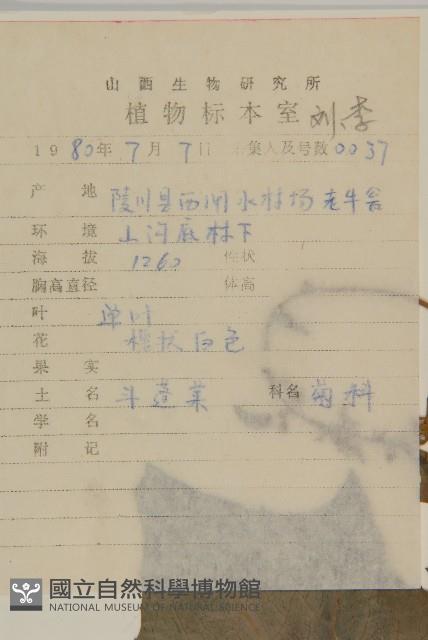 山西生物研究所
植物标本室 刘、李
1980年7月7日 采集人及号数0037
产地 陵川县西闸水林场
环境 山沟底林下
海拔 1260 性状
胸高直径 体高
叶 单叶
花 白色
果实
土名 斗蓬菜 科名 菊科
学名
附记
國立自然科學博物館
NATIONAL MUSEUM OF NATURAL SCIENCE